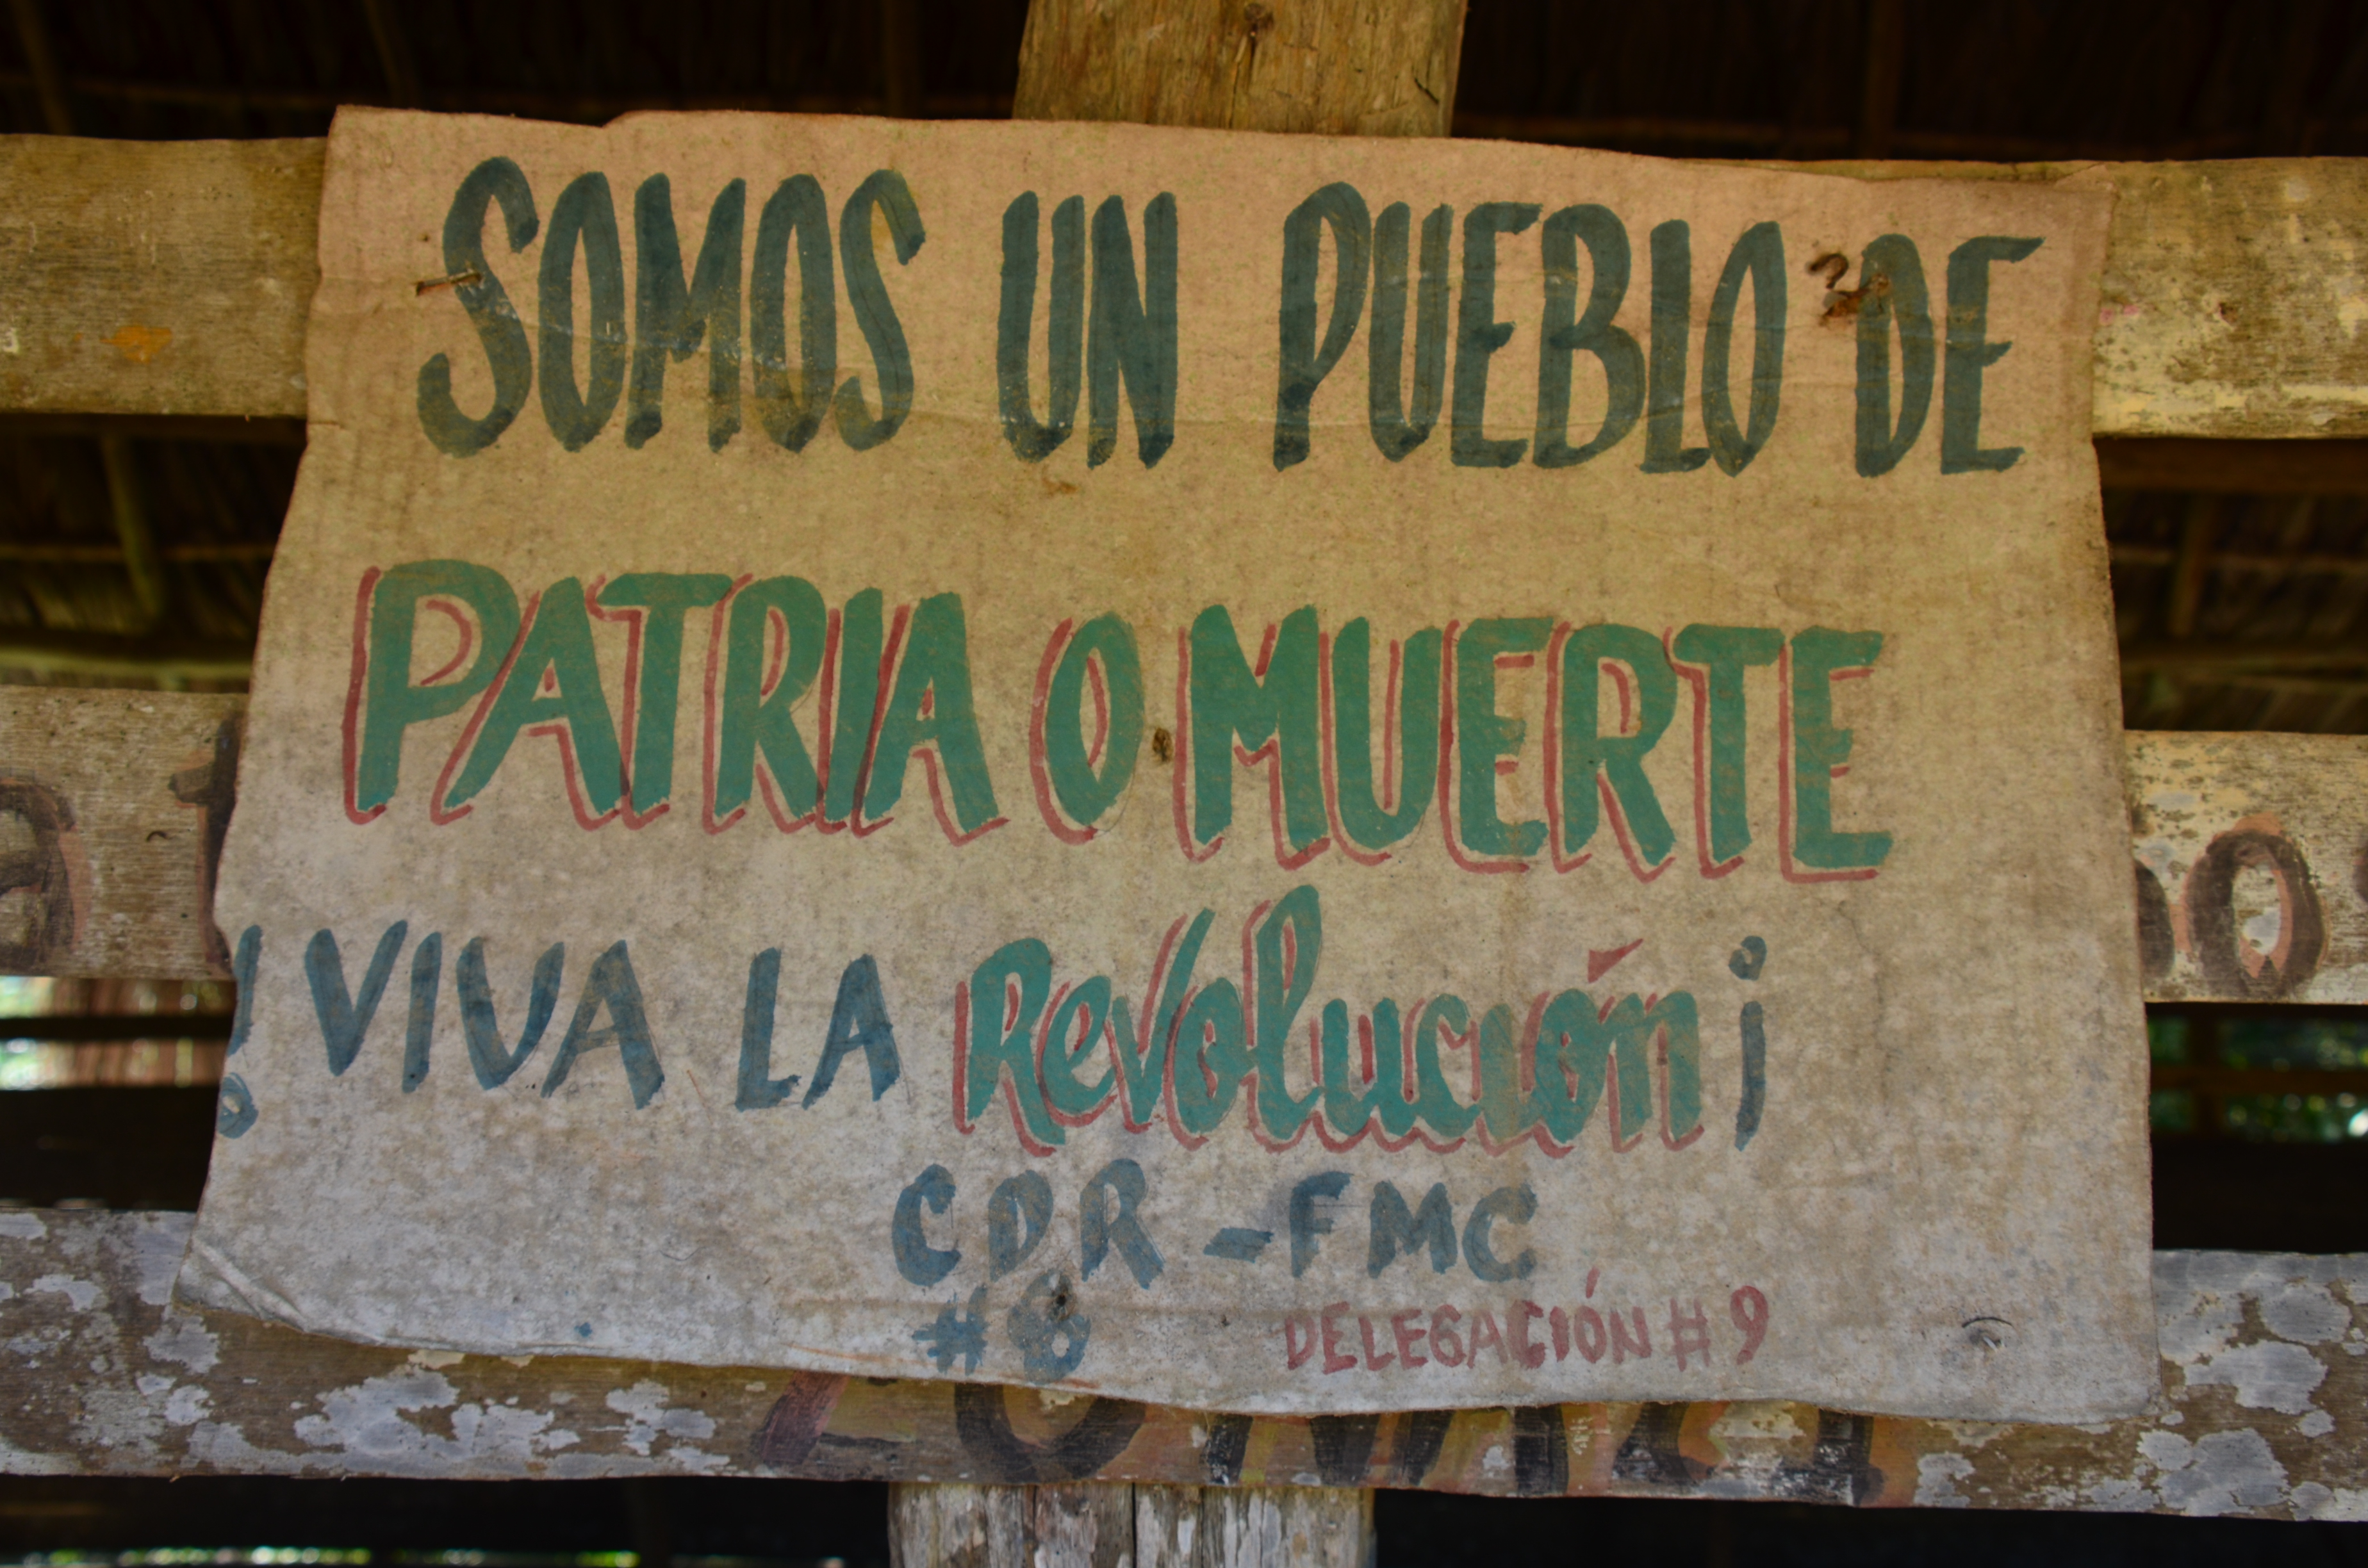 SOMOS UN PUEBLO DE
PATRIA O MUERTE
! VIVA LA Revolución ¡
CDR - FMC
#8 DELEGACIÓN # 9